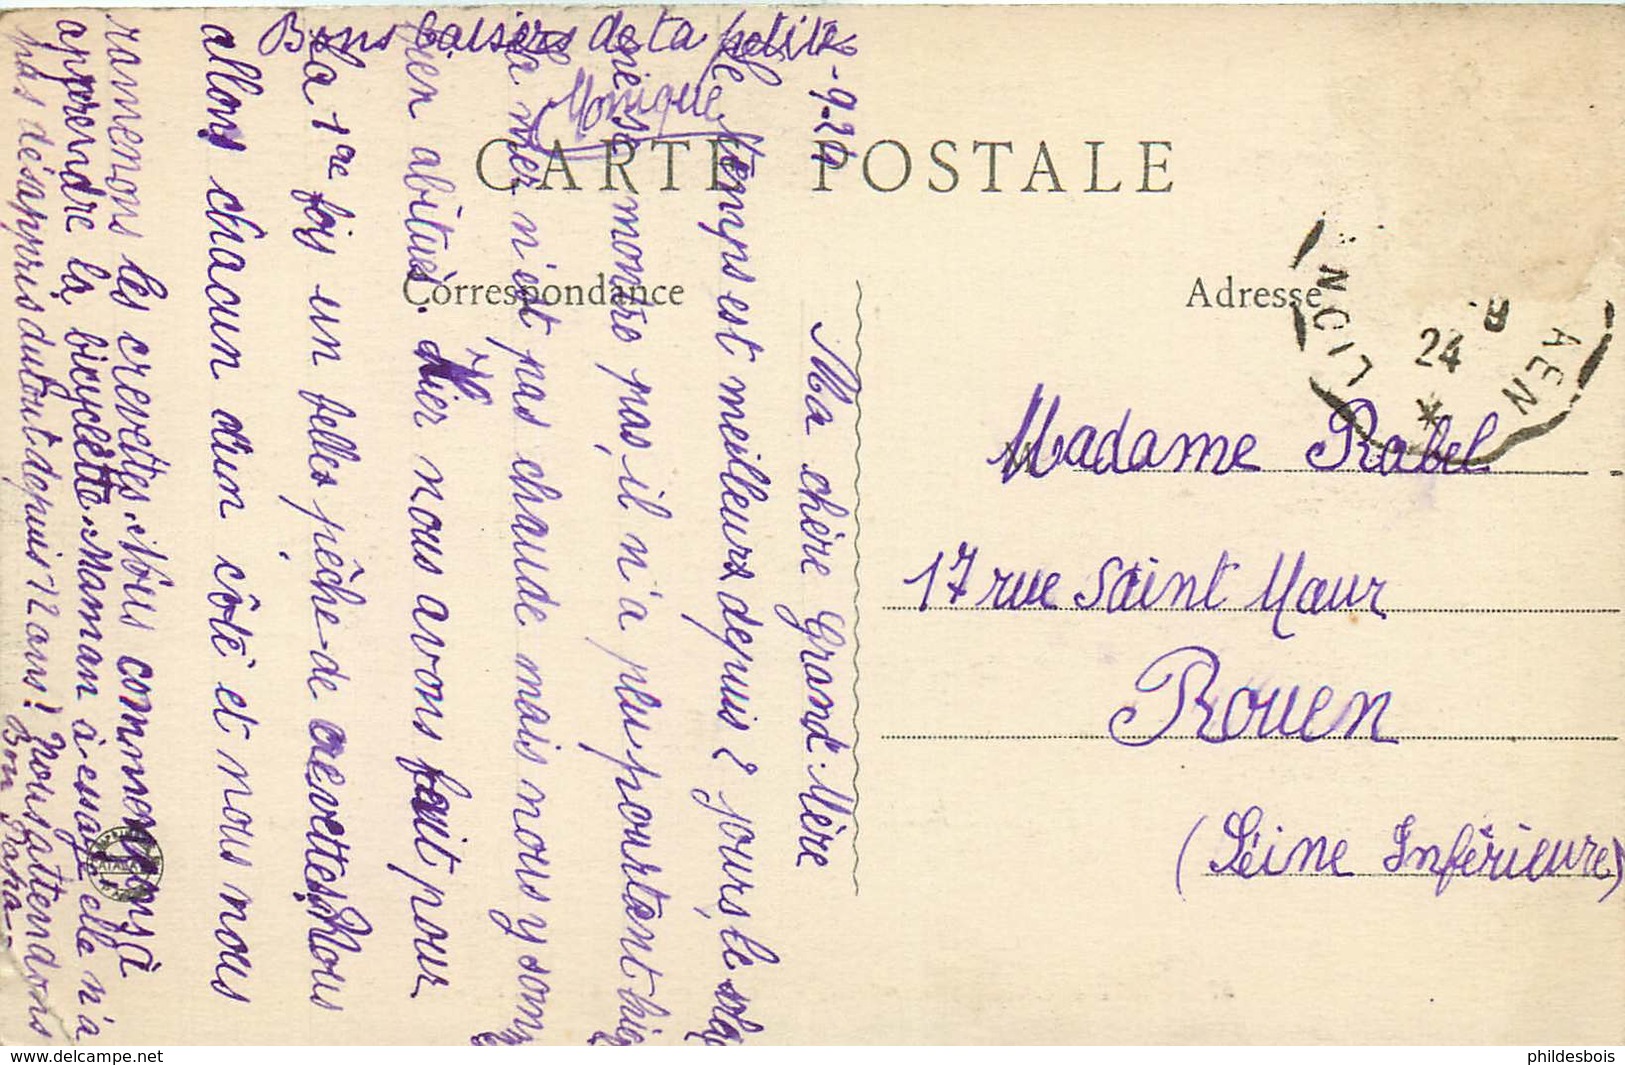 CARTE POSTALE
Correspondance
Adresse
-9-24
Ma chère Grand'Mère
le temps est meilleurs depuis 2 jours, le
même se montre pas, il n'a plu pourtant
la mer n'est pas chaude mais nous y som
bien abitués. Hier nous avons fait pour
La 1ere fois un belles pêche de crevettes, Nous
allons chacun d'un côté et nous nous
ramenons les crevettes. Nous commençons à
apprendre la bicyclette, Maman a essayé elle n'a
pas désappris du tout depuis 12 ans! Nous attendons
Bon Papa--
Bons baisers de ta petite
Monique
Madame Rabel
17 rue Saint Maur
Rouen
(Séine Inférieure)
24
AEN
phildesbois
www.delcampe.net